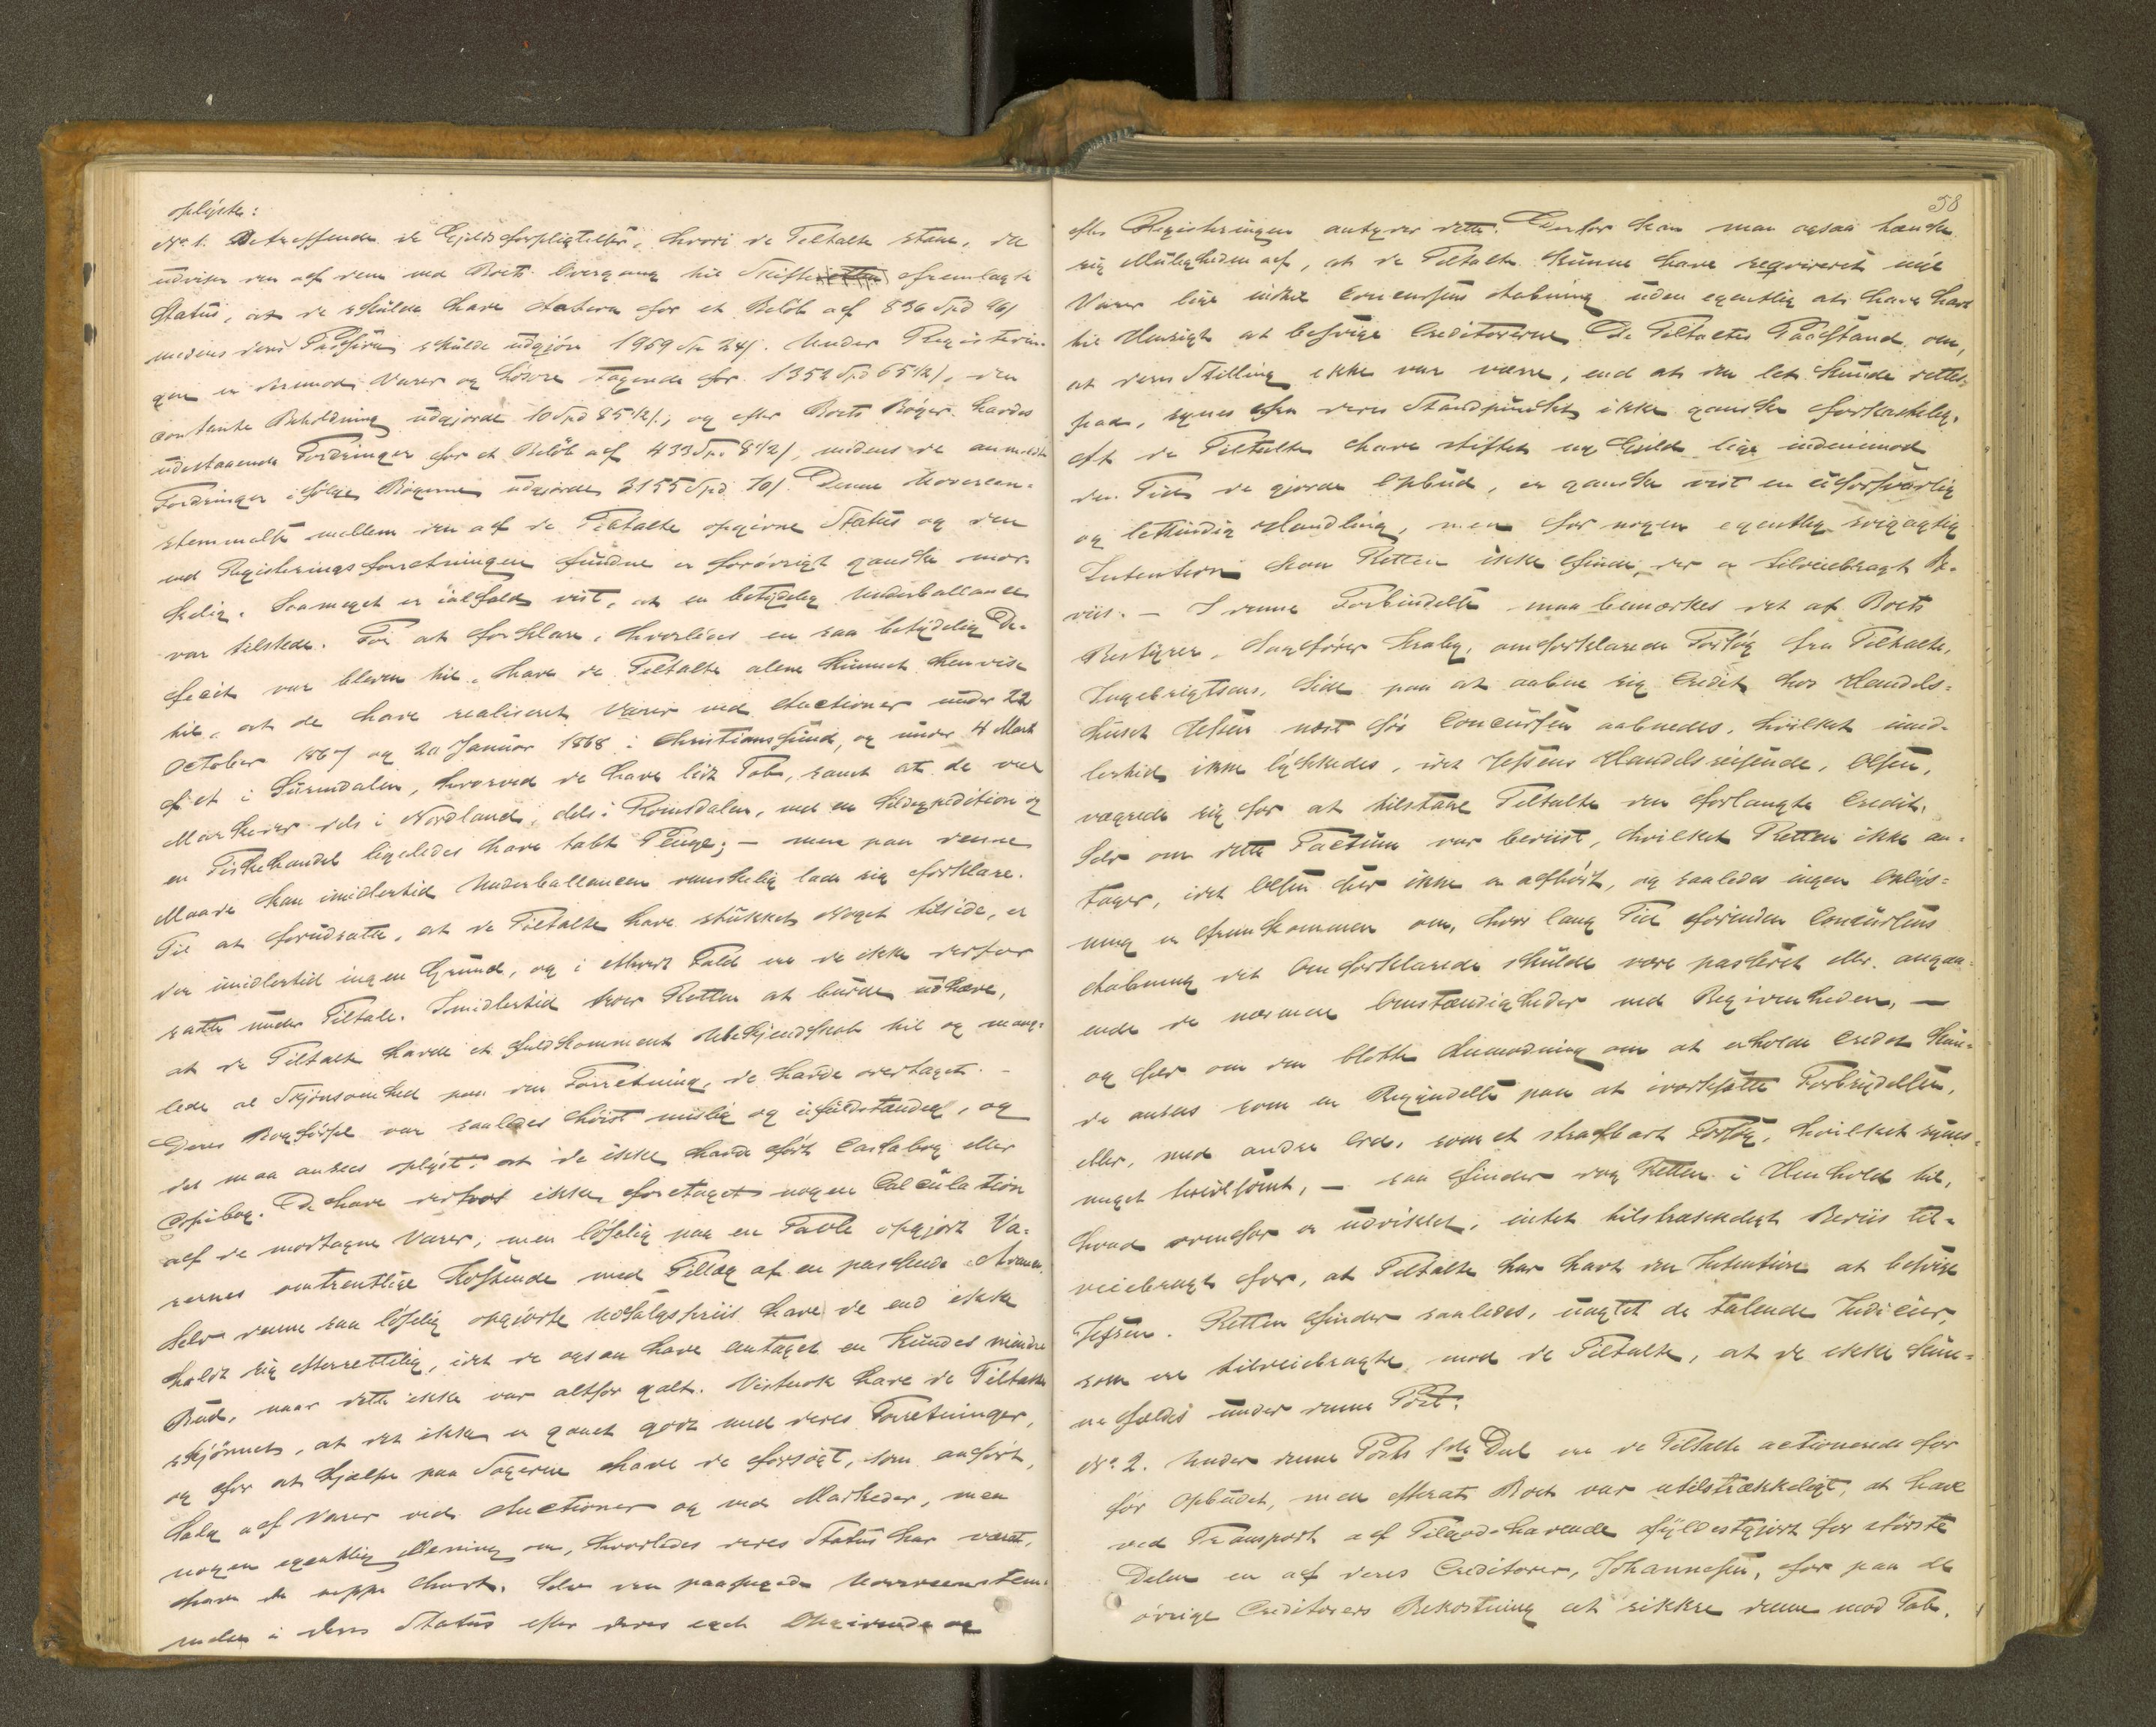 oplyste:
No 1. Betreffende de Gjeldsforpligtelser, hvori de Tiltalte staae, da
udviser den af dem ved Boets Overgang til Skifteretten fremlagte
Status, at de skulde have Activa for et Beløb af 836 Spd 96/
medens deres Passiva skulde udgjøre 1969 Sp 24/. Under Registerin-
gen er derimod Varer og Løsøre tagende for 1352 Spd 65 1/2/, den
contante Beholdning udgjorde 10 Spd 85 1/2/; og efter Boets Bøger havdes
udestaaende Fordringer for et Beløb af 433 Sp. 8 1/2/, medens de anmeldte
Fordringer ifølge Bøgerne udgjorde 3155 Spd 10/. Denne Uoverens-
stemmelse mellem den af de Tiltalte opgivne Status og den
ved Registeringsforretningen fundne er forøvrigt ganske mær-
kelig. Saameget er ialfald vist, at en betydelig Underballance
var tilstede. For at forklare, hvorledes en saa betydelig De-
ficit var bleven til, have de Tiltalte alene kunnet henvise
til, at de have realiseret Varer ved Auctioner under 22
October 1867 og 20 Januar 1868 i Christianssund, og under 4 Marts
s. A. i Surendalen, hvorved de have lidt Tab, samt at de ved
Markeder dels i Nordland, dels i Romsdalen, ved en Sildexpedition og
en Fiskehandel ligeledes have tabt Penge; – men paa denne
Maade kan imidlertid Underballancen vanskelig lade sig forklare.
Til at forudsætte, at de Tiltalte have stukket Noget tilside, er
der imidlertid ingen Grund, og i ethvert Fald ere de ikke derfor
satte under Tiltale. Imidlertid troer Retten at burde udhæve,
at de Tiltalte havde et fuldkomment Ubekjendtskab til og mang-
lede al Skjønsomhed paa den Forretning, de havde overtaget. –
Deres Bogførsel var saaledes høist mislig og ufuldstændig, og
det maa ansees oplyst, at de ikke havde ført Cassabog eller
Copibog. De have derhos ikke foretaget nogen Calculation
af de modtagne Varer, men løselig paa en Tavle opgjort Va-
rernes omtrentlige Kostende med Tillæg af en passende Avance.
Selv denne saa løselig opgjorte Udsalgspriis have de end ikke
holdt sig efterrettelig, idet de ogsaa have antaget en Kundes mindre
Bud, naar dette ikke var altfor galt. Vistnok have de Tiltalte
skjønnet, at det ikke er gaaet godt med deres Forretninger,
og for at hjælpe paa Sagerne have de forsøgt, som anført,
Salg af Varer ved Auctioner og ved Markeder, men
nogen egentlig Mening om, hvorledes deres Status har været,
have de neppe havt. Selv den paapegede Uoverensstem-
melse i deres Status efter deres eget Opgivende og
58
efter Registeringen antyder dette. Derfor kan man ogsaa tænke
sig Muligheden af, at de Tiltalte kunne have reqvireret nye
Varer lige indtil Concursens Aabning uden egentlig at have havt
til Hensigt at besvige Creditorerne. De Tiltaltes Paastand om,
at deres Stilling ikke var værre, end at den let kunde rettes
paa, synes fra deres Standpunkt ikke ganske forkastelig.
At de Tiltalte have stiftet ny Gjeld lige indenimod
den Tid de gjorde Opbud, er ganske vist en uforsvarlig
og letsindig Handling, men for nogen egentlig svigagtig
Intention kan Retten ikke finde, der er tilveiebragt Be-
viis. – I denne Forbindelse maa bemærkes det af Boets
Bestyrer, Sagfører Krabø, omforklarede Forsøg fra Tiltalte,
Ingebrigtsens, Side paa at aabne sig Credit hos Handels-
huset Jessen næst før Concursen aabnedes, hvilket imid-
lertid ikke lykkedes, idet Jessens Handelsreisende, Olsen,
vægrede sig for at tilstaae Tiltalte den forlangte Credit.
Selv om dette Factum var beviist, hvilket Retten ikke an-
tager, idet Olsen her ikke er afhørt, og saaledes ingen Oplys-
ning er fremkommen om, hvor lang Tid forinden Concursens
Aabning det Omforklarede skulde være passeret eller angaa-
ende de nærmere Omstændigheder ved Begivenheden, –
og selv om den blotte Anmodning om at erholde Credit kun-
de ansees som en Begyndelse paa at iværksætte Forbrydelsen,
eller, med andre Ord, som et strafbart Forsøg, hvilket synes
meget tvivlsomt, – saa finder dog Retten i Henhold til,
hvad ovenfor er udviklet, intet tilstrækkeligt Beviis til-
veiebragt for, at Tiltalte har havt den Intention at besvige
Jessen. Retten finder saaledes, uagtet de talende Indicier,
som ere tilveiebragte mod de Tiltalte, at de ikke kun-
ne fældes under denne Post.
No 2. Under denne Posts 1ste Deel ere de Tiltalte actionerede for
før Opbudet, men efterat Boet var utilstrækkeligt, at have
ved Transport af Tilgodehavende fyldestgjort for største
Delen en af deres Creditorer, Johannesen, for paa de
øvrige Creditorers Bekostning at sikkre denne mod Tab.